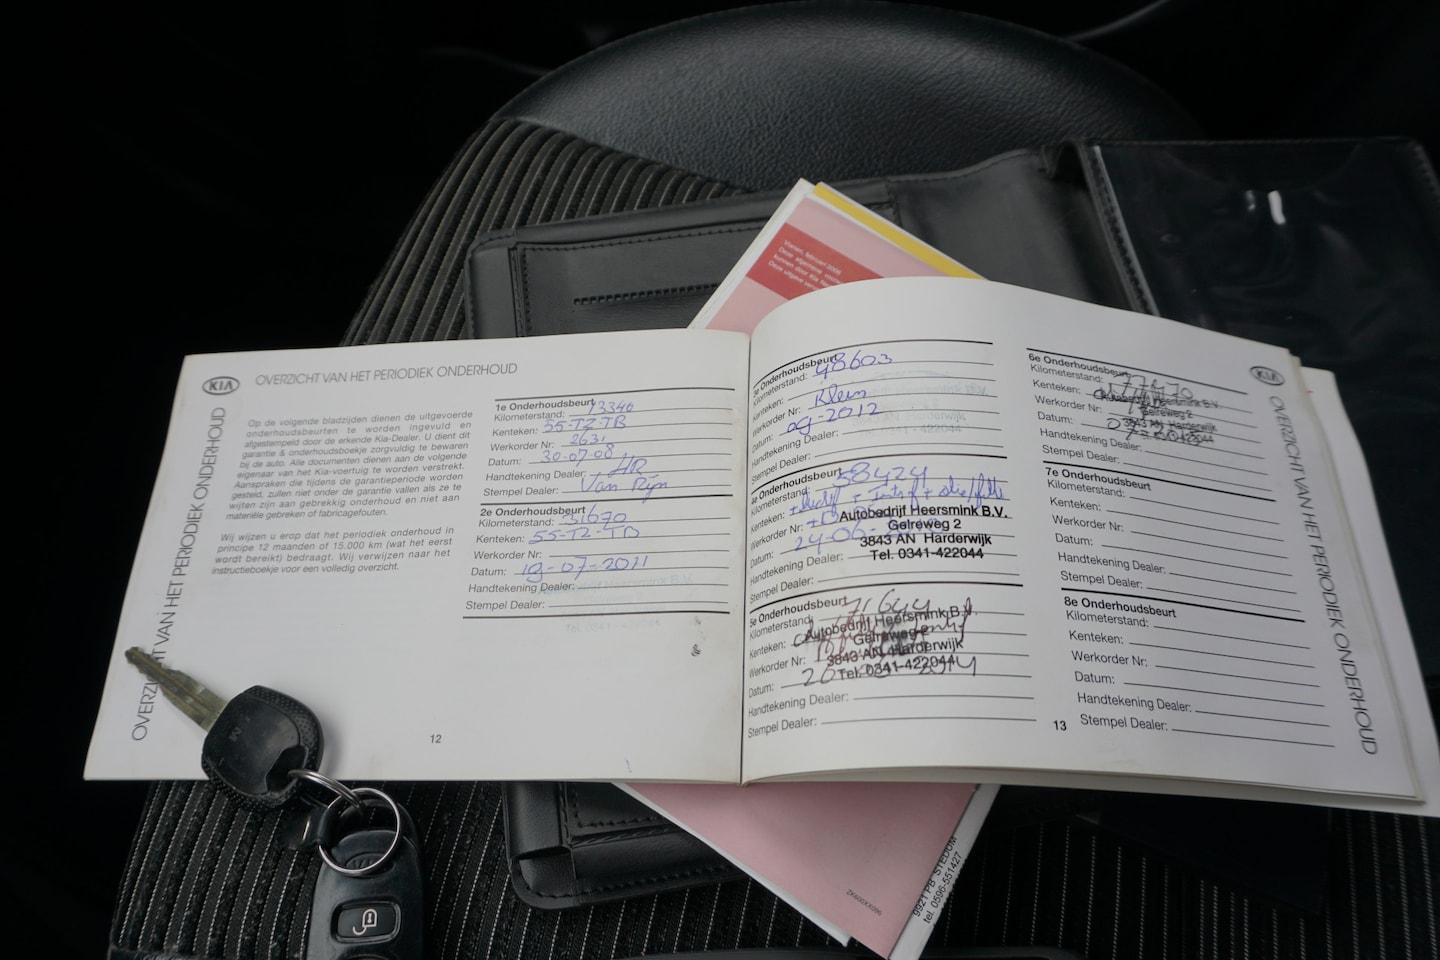 KIA
OVERZICHT VAN HET PERIODIEK ONDERHOUD
OVERZICHT VAN HET PERIODIEK ONDERHOUD
Op de volgende bladzijden dienen de uitgevoerde
onderhoudsbeurten te worden ingevuld en
afgestempeld door de erkende Kia-Dealer. U dient dit
garantie & onderhoudsboekje zorgvuldig te bewaren
bij de auto. Alle documenten dienen aan de volgende
eigenaar van het Kia-voertuig te worden verstrekt.
Aanspraken die tijdens de garantieperiode worden
gesteld, zullen niet onder de garantie vallen als ze te
wijten zijn aan gebrekkig onderhoud en niet aan
materiële gebreken of fabricagefouten.
Wij wijzen u erop dat het periodiek onderhoud in
principe 12 maanden of 15.000 km (wat het eerst
wordt bereikt) bedraagt. Wij verwijzen naar het
instructieboekje voor een volledig overzicht.
1e Onderhoudsbeurt
Kilometerstand: 13340
Kenteken: 55-TZ-TB
Werkorder Nr: 2631
Datum: 30-07-08
Handtekening Dealer: HR
Stempel Dealer: Van Rijn
2e Onderhoudsbeurt
Kilometerstand: 31670
Kenteken: 55-TZ-TB
Werkorder Nr:
Datum: 19-07-2011
Handtekening Dealer:
Stempel Dealer:
Tel. 0341-422044
12
Onderhoudsbeurt
Kilometerstand: 48603
Kenteken: Klein
Werkorder Nr:
Datum: 09-2012
Handtekening Dealer:
Stempel Dealer:
4e Onderhoudsbeurt
Kilometerstand: 58424
Kenteken:
Werkorder Nr:
Datum: 24-06-
Handtekening Dealer:
Stempel Dealer:
Autobedrijf Heersmink B.V.
Gelreweg 2
3843 AN Harderwijk
Tel. 0341-422044
5e Onderhoudsbeurt
Kilometerstand: 71644
Kenteken:
Werkorder Nr:
Datum:
Handtekening Dealer:
Stempel Dealer:
Autobedrijf Heersmink B.V.
Gelreweg 2
3843 AN Harderwijk
Tel. 0341-422044
13
KIA
6e Onderhoudsbeurt
Kilometerstand: 77470
Kenteken:
Werkorder Nr:
Datum:
Handtekening Dealer:
Stempel Dealer:
Autobedrijf Heersmink B.V.
Gelreweg 2
3843 AN Harderwijk
7e Onderhoudsbeurt
Kilometerstand:
Kenteken:
Werkorder Nr:
Datum:
Handtekening Dealer:
Stempel Dealer:
8e Onderhoudsbeurt
Kilometerstand:
Kenteken:
Werkorder Nr:
Datum:
Handtekening Dealer:
Stempel Dealer:
OVERZICHT VAN HET PERIODIEK ONDERHOUD
Vianen, februari 2006
9921 PB STEDUM
tel. 0596-551427